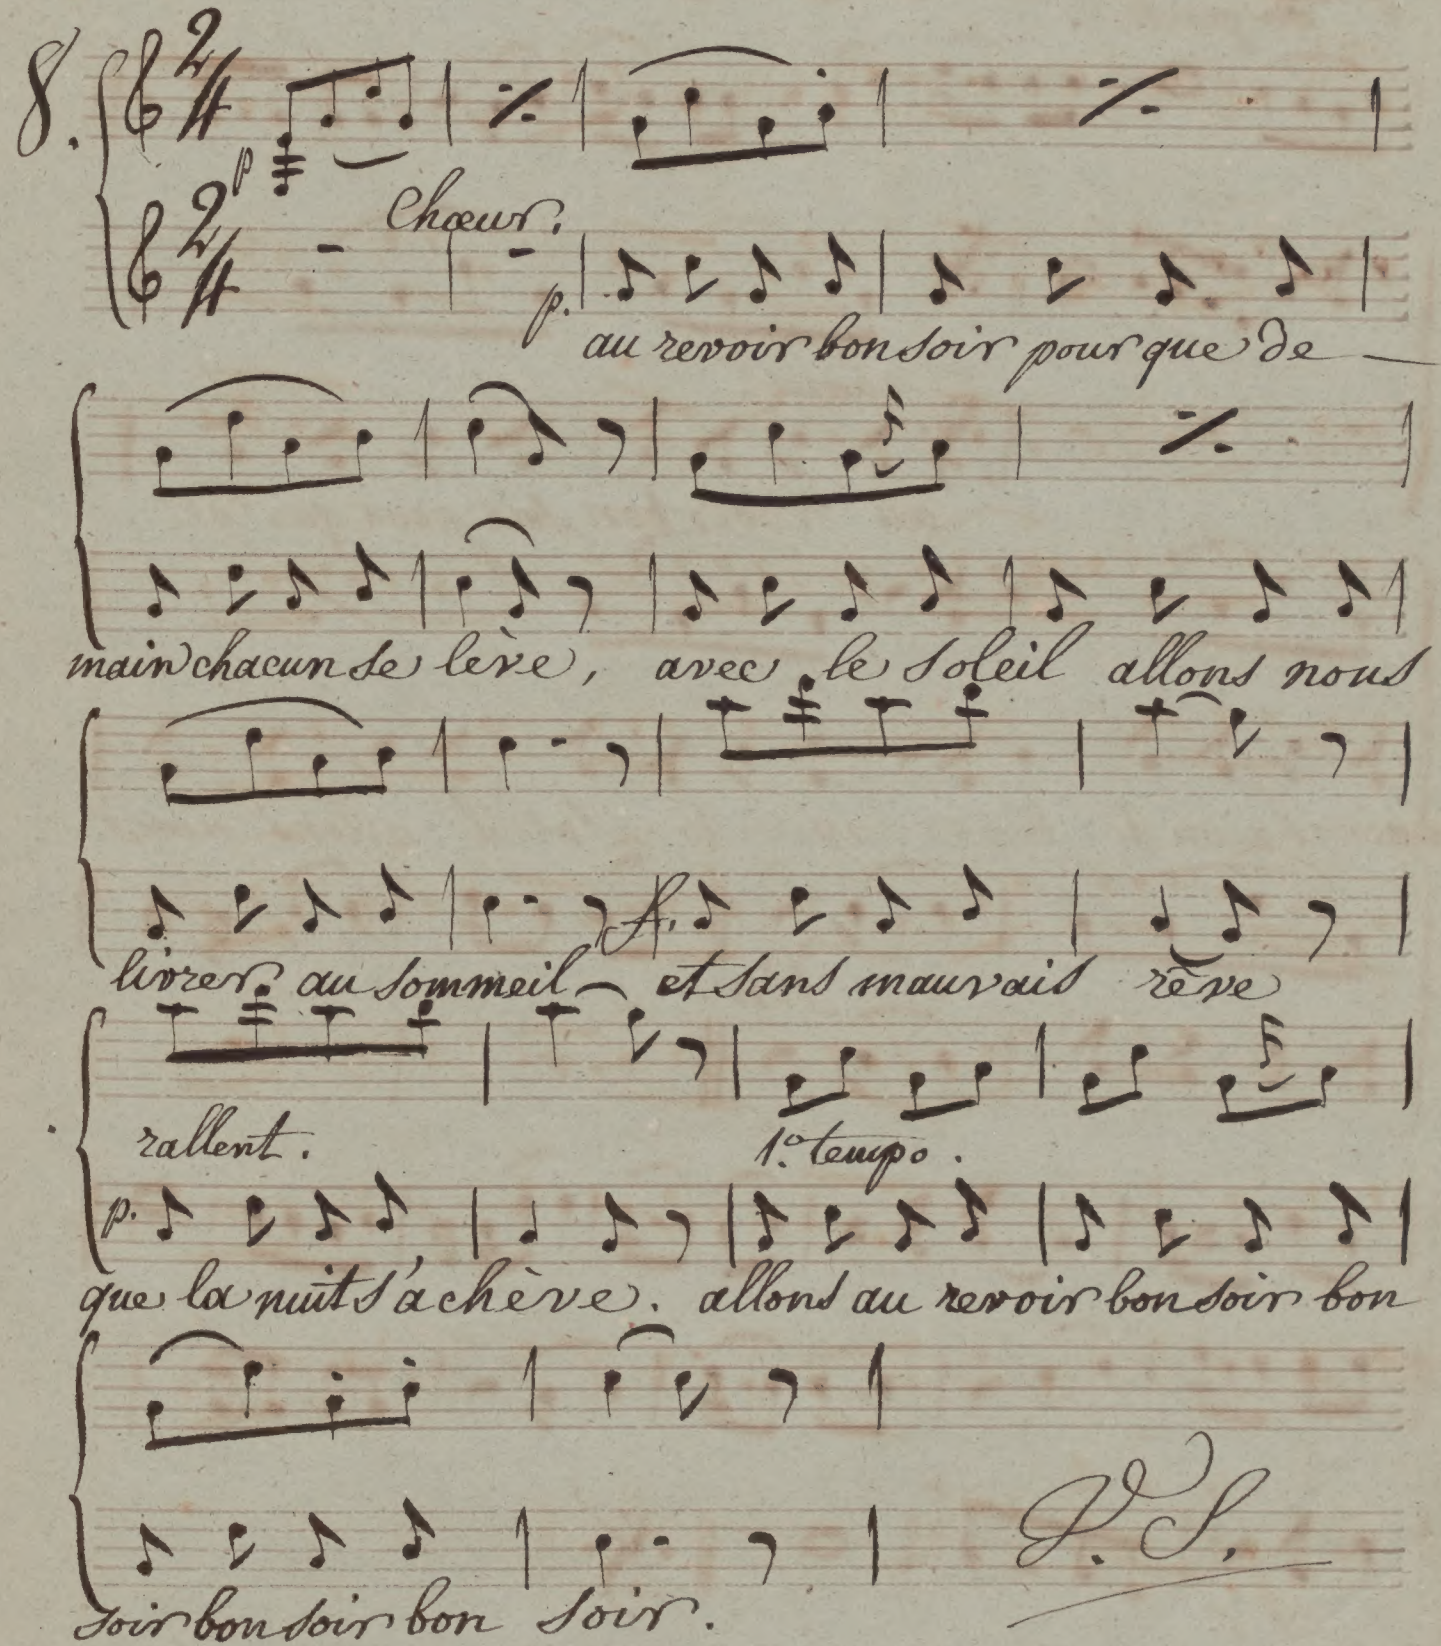 8.
2/4
p
Chœur.
2/4
p.
au revoir bonsoir pour que de —
main chacun se lève, avec le soleil allons nous
f.
livrer au sommeil et sans mauvais rêve
rallent. 1.o tempo.
p.
que la nuit s'achève. allons au revoir bon soir bon
V. S.
soir bon soir bon soir.